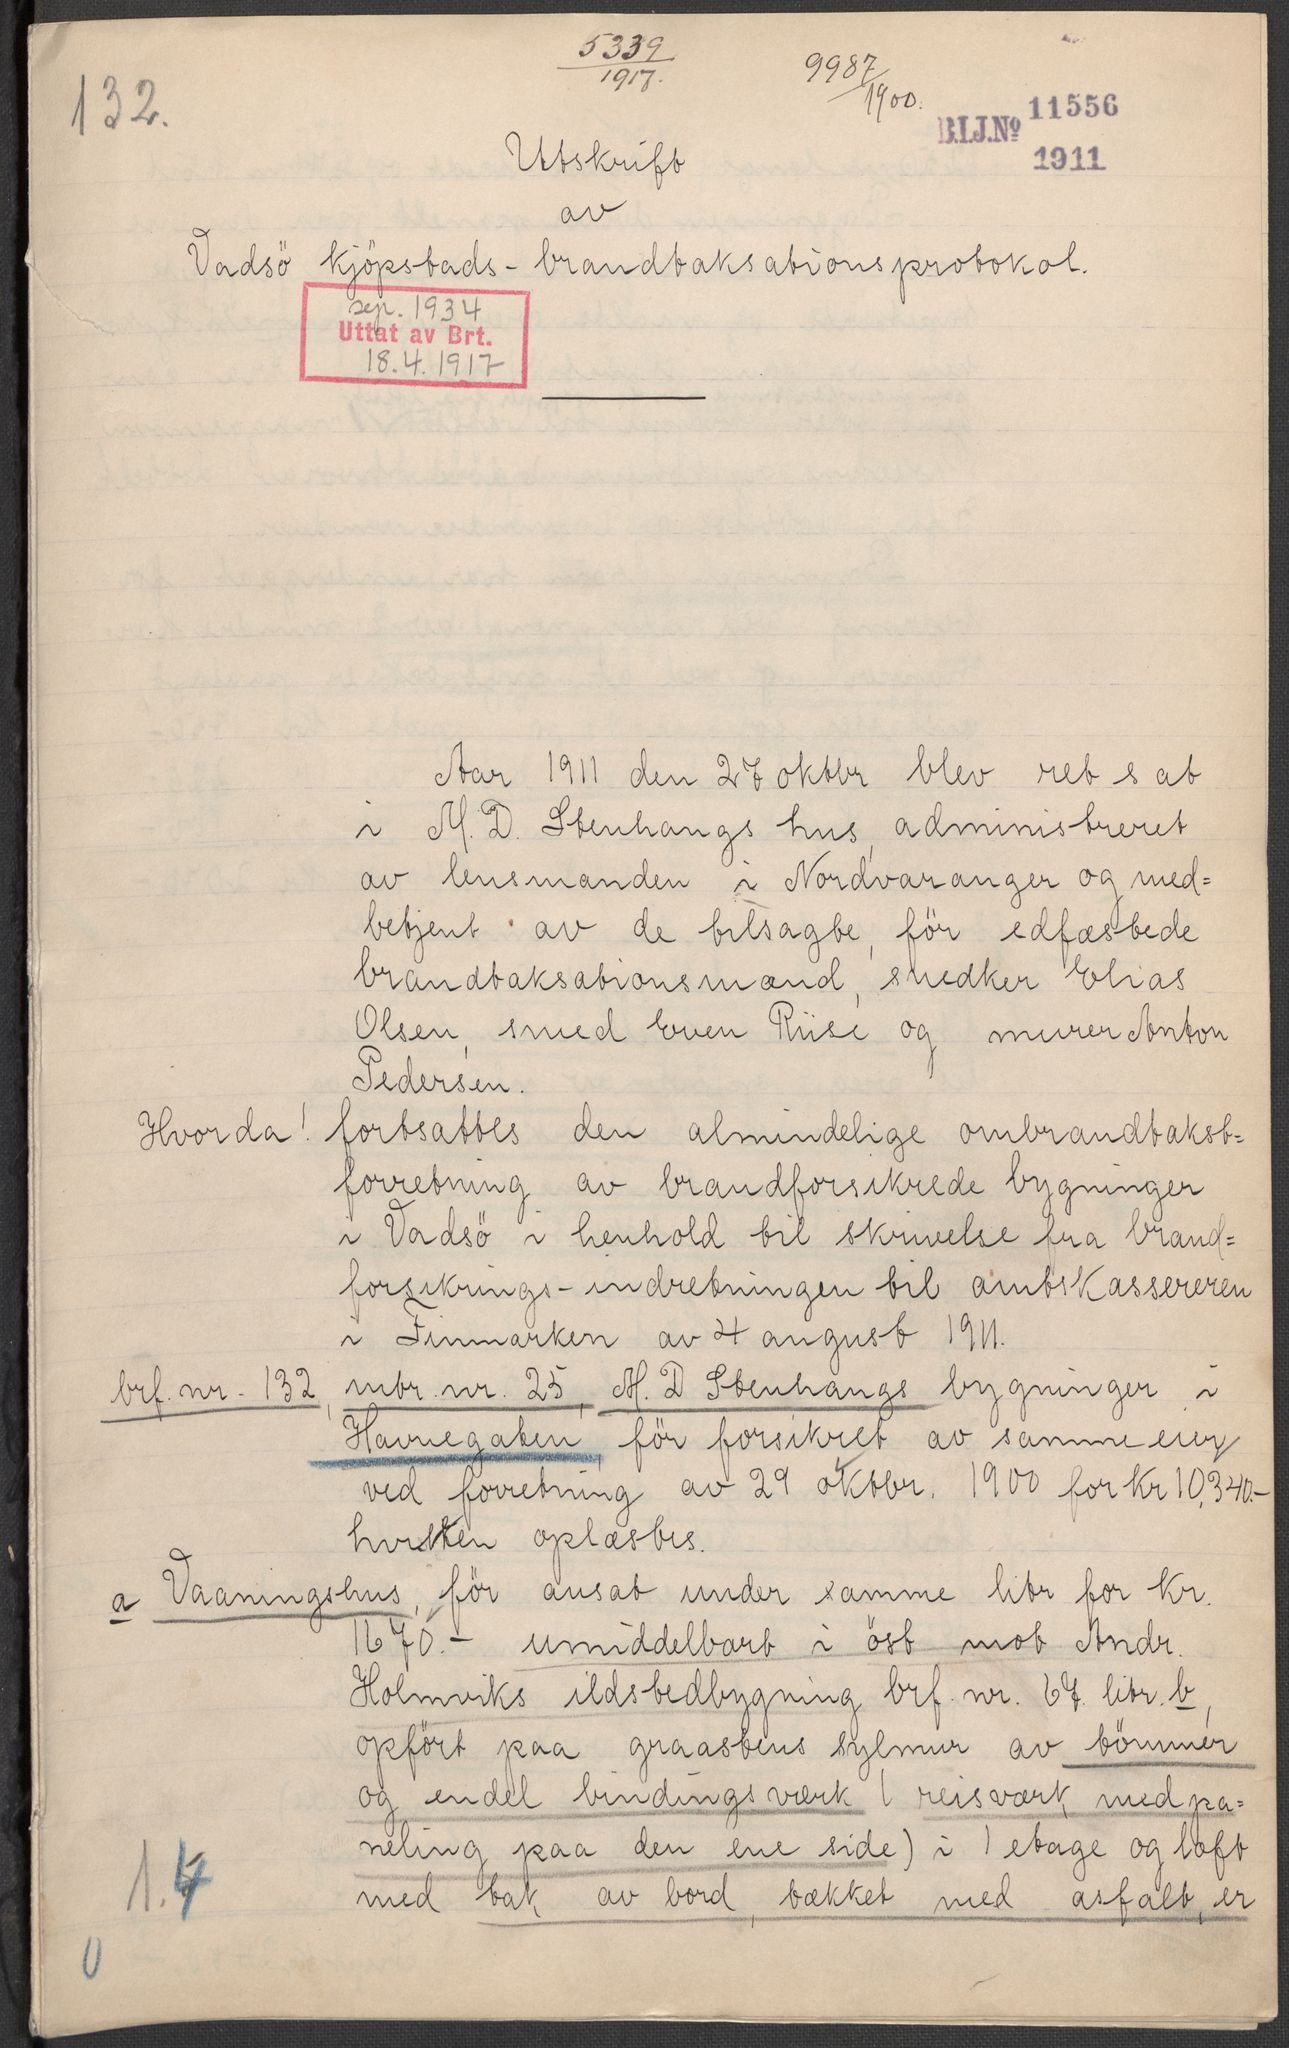 132.
5339
1917.
9987
1900.
B.I.J.Nº 11556
1911
Utskrift
av
Vadsö kjöpstads-brandtaksationsprotokol.
sep. 1934
Uttat av Brt.
18.4.1917
Aar 1911 den 27 oktbr blev ret sat
i M. D. Stenhaugs hus, administreret
av lensmanden i Nordvaranger og med=
betjent av de tilsagte, för edfæstede
brandtaksationsmænd, snedker Elias
Olsen, smed Even Riise og murer Anton
Pedersen.
Hvorda! fortsattes den almindelige ombrandtakst=
forretning av brandforsikrede bygninger
i Vadsö i henhold til skrivelse fra brand=
forsikrings-indretningen til amtskassereren
i Finmarken av 4 august 1911.
brf. nr. 132, mtr. nr. 25, M. D Stenhaugs bygninger i
Havnegaten, för forsikret av samme eier
ved forretning av 29 oktbr. 1900 for Kr 10,340.-
hvilken oplæstes.
a Vaaningshus, för ansat under samme litr for Kr.
1670.- umiddelbart i öst mot Andr.
Holmviks ildstedbygning brf. nr. 67. litr. b,
opfört paa graastens sylmur av tömmer
og endel bindingsverk (reisverk, med pa=
neling paa den ene side) i 1 etage og loft
med tak av bord, tækket med asfalt, er
1.4
0